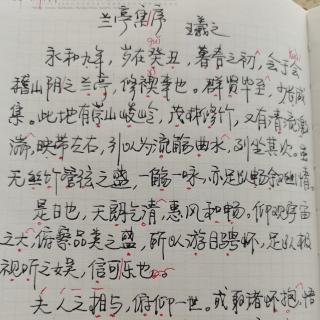 兰亭集序 王羲之
永和九年，岁在癸丑，暮春之初，会于会
稽山阴之兰亭，修禊事也。群贤毕至，少长咸
集。此地有崇山峻岭，茂林修竹，又有清流激
湍，映带左右，引以为流觞曲水，列坐其次。虽
无丝竹管弦之盛，一觞一咏，亦足以畅叙幽情。
是日也，天朗气清，惠风和畅。仰观宇宙
之大，俯察品类之盛，所以游目骋怀，足以极
视听之娱，信可乐也。
夫人之相与，俯仰一世。或取诸怀抱，悟